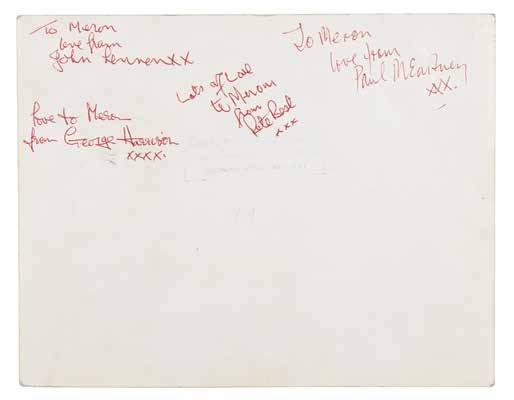 To Meron
love from
John Lennon XX
Love to Meron
from George Harrison
xxxx.
Lots of Love
to Merom
from
Pete Best
xxx
To Meron
love from
Paul McCartney
XX.